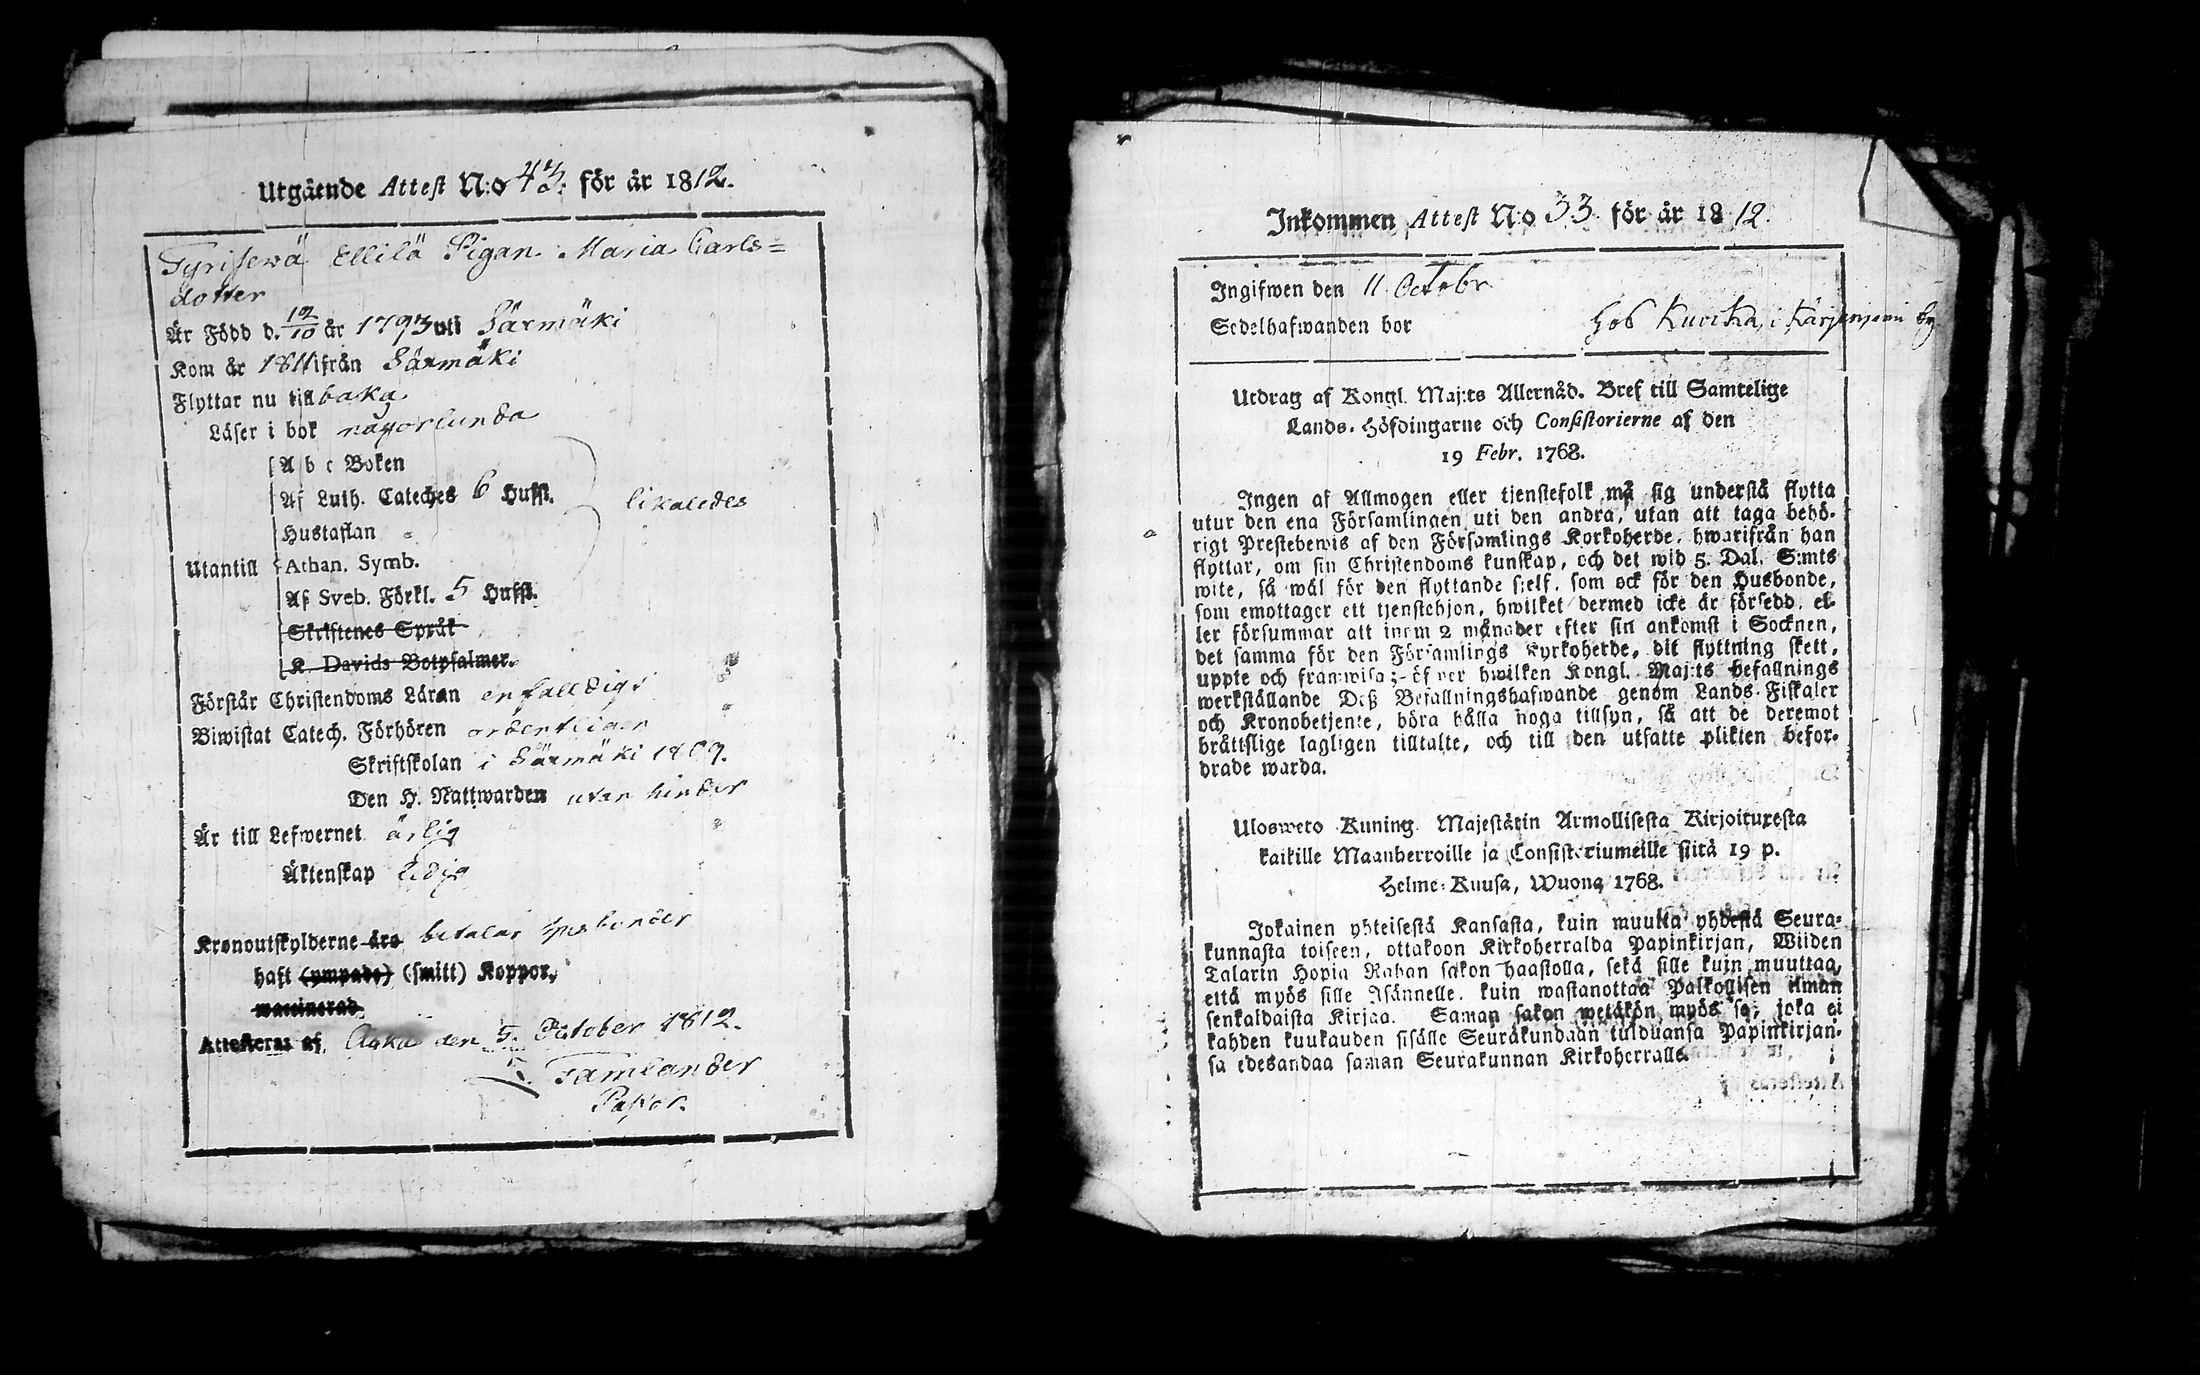 Utgående Attest N:o 43. för år 1812.
Tyrisewä Ellilä Pigan Maria Carls=
dotter
Är Född d. 12/10 år 1793 uti Säxmäki
Kom år 1811 ifrån Säxmäki
Flyttar nu tillbaka
Läser i bok någorlunda
A b c Boken
Af Luth. Cateches 6 Hufst.
likaledes
Hustaflan
Utantill
Athan. Symb.
Af Sveb. Förkl. 5 Hufst.
Skriftenes Språk
K. Davids Botpsalmer.
Förstår Christendoms Läran enfaldigt
Biwistat Catech. Förhören ordentligen
Skriftskolan i Säxmäki 1809.
Den H. Nattwarden utan hinder
Är till Lefwernet ärlig
Äktenskap ledig
Kronoutskylderne äro betalar Husbonder
haft (ympade) (smitt) Koppor.
waccinerad.
Attesteras af Acka den 5. October 1812.
Tamlander
Pastor.
Inkommen Attest N:o 33 för år 1812.
Ingifwen den 11 Octobr
Sedelhafwanden bor hos Kurika i Kärjenjemi by
Utdrag af Kongl. Maj:ts Allernåd. Bref till Samtelige
Lands-Höfdingarne och Consistorierne af den
19 Febr. 1768.
Ingen af Allmogen eller tjenstefolk må sig understå flytta
utur den ena Församlingen uti den andra, utan att taga behö-
rigt Prestebewis af den Församlings Korkoherde, hwarifrån han
flyttar, om sin Christendoms kunskap, och det wid 5. Dal. S:mts
wite, så wäl för den flyttande sjelf, som ock för den Husbonde,
som emottager ett tjenstehjon, hwilket dermed icke är försedd, el-
ler försummar att inom 2 månader efter sin ankomst i Socknen,
det samma för den Församlings Kyrkoherde, dit flyttning skett,
uppte och framwisa;- öfwer hwilken Kongl. Maj:ts befallnings
werkställande Deß Befallningshafwande genom Lands-Fiskaler
och Kronobetjente, böra hålla noga tillsyn, så att de deremot
bråttslige lagligen tilltalte, och till den utsatte plikten befor-
drade warda.
Ulosweto Kuning. Majestätin Armollisesta Kirjoituxesta
kaikille Maanherroille ja Consistoriumeille siitä 19 p.
Helme-Kuusa, Wuona 1768.
Jokainen yhteisestä Kansasta, kuin muutta yhdestä Seura-
kunnasta toiseen, ottakoon Kirkoherralda Papinkirjan, Wiiden
Talarin Hopia Rahan sakon haastolla, sekä sille kuin muuttaa,
että myös sille Isännelle, kuin wastanottaa Palkollisen ilman
senkaldaista Kirjaa. Saman sakon wetäkön myös se, joka ei
kahden kuukauden sisälle Seurakundaan tulduansa Papinkirjan-
sa edesandaa saman Seurakunnan Kirkoherralle.